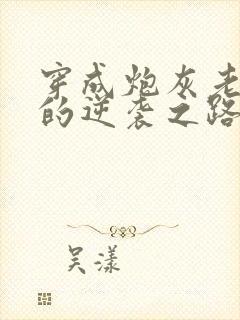 穿成炮灰老
的逆袭之路
吴漾